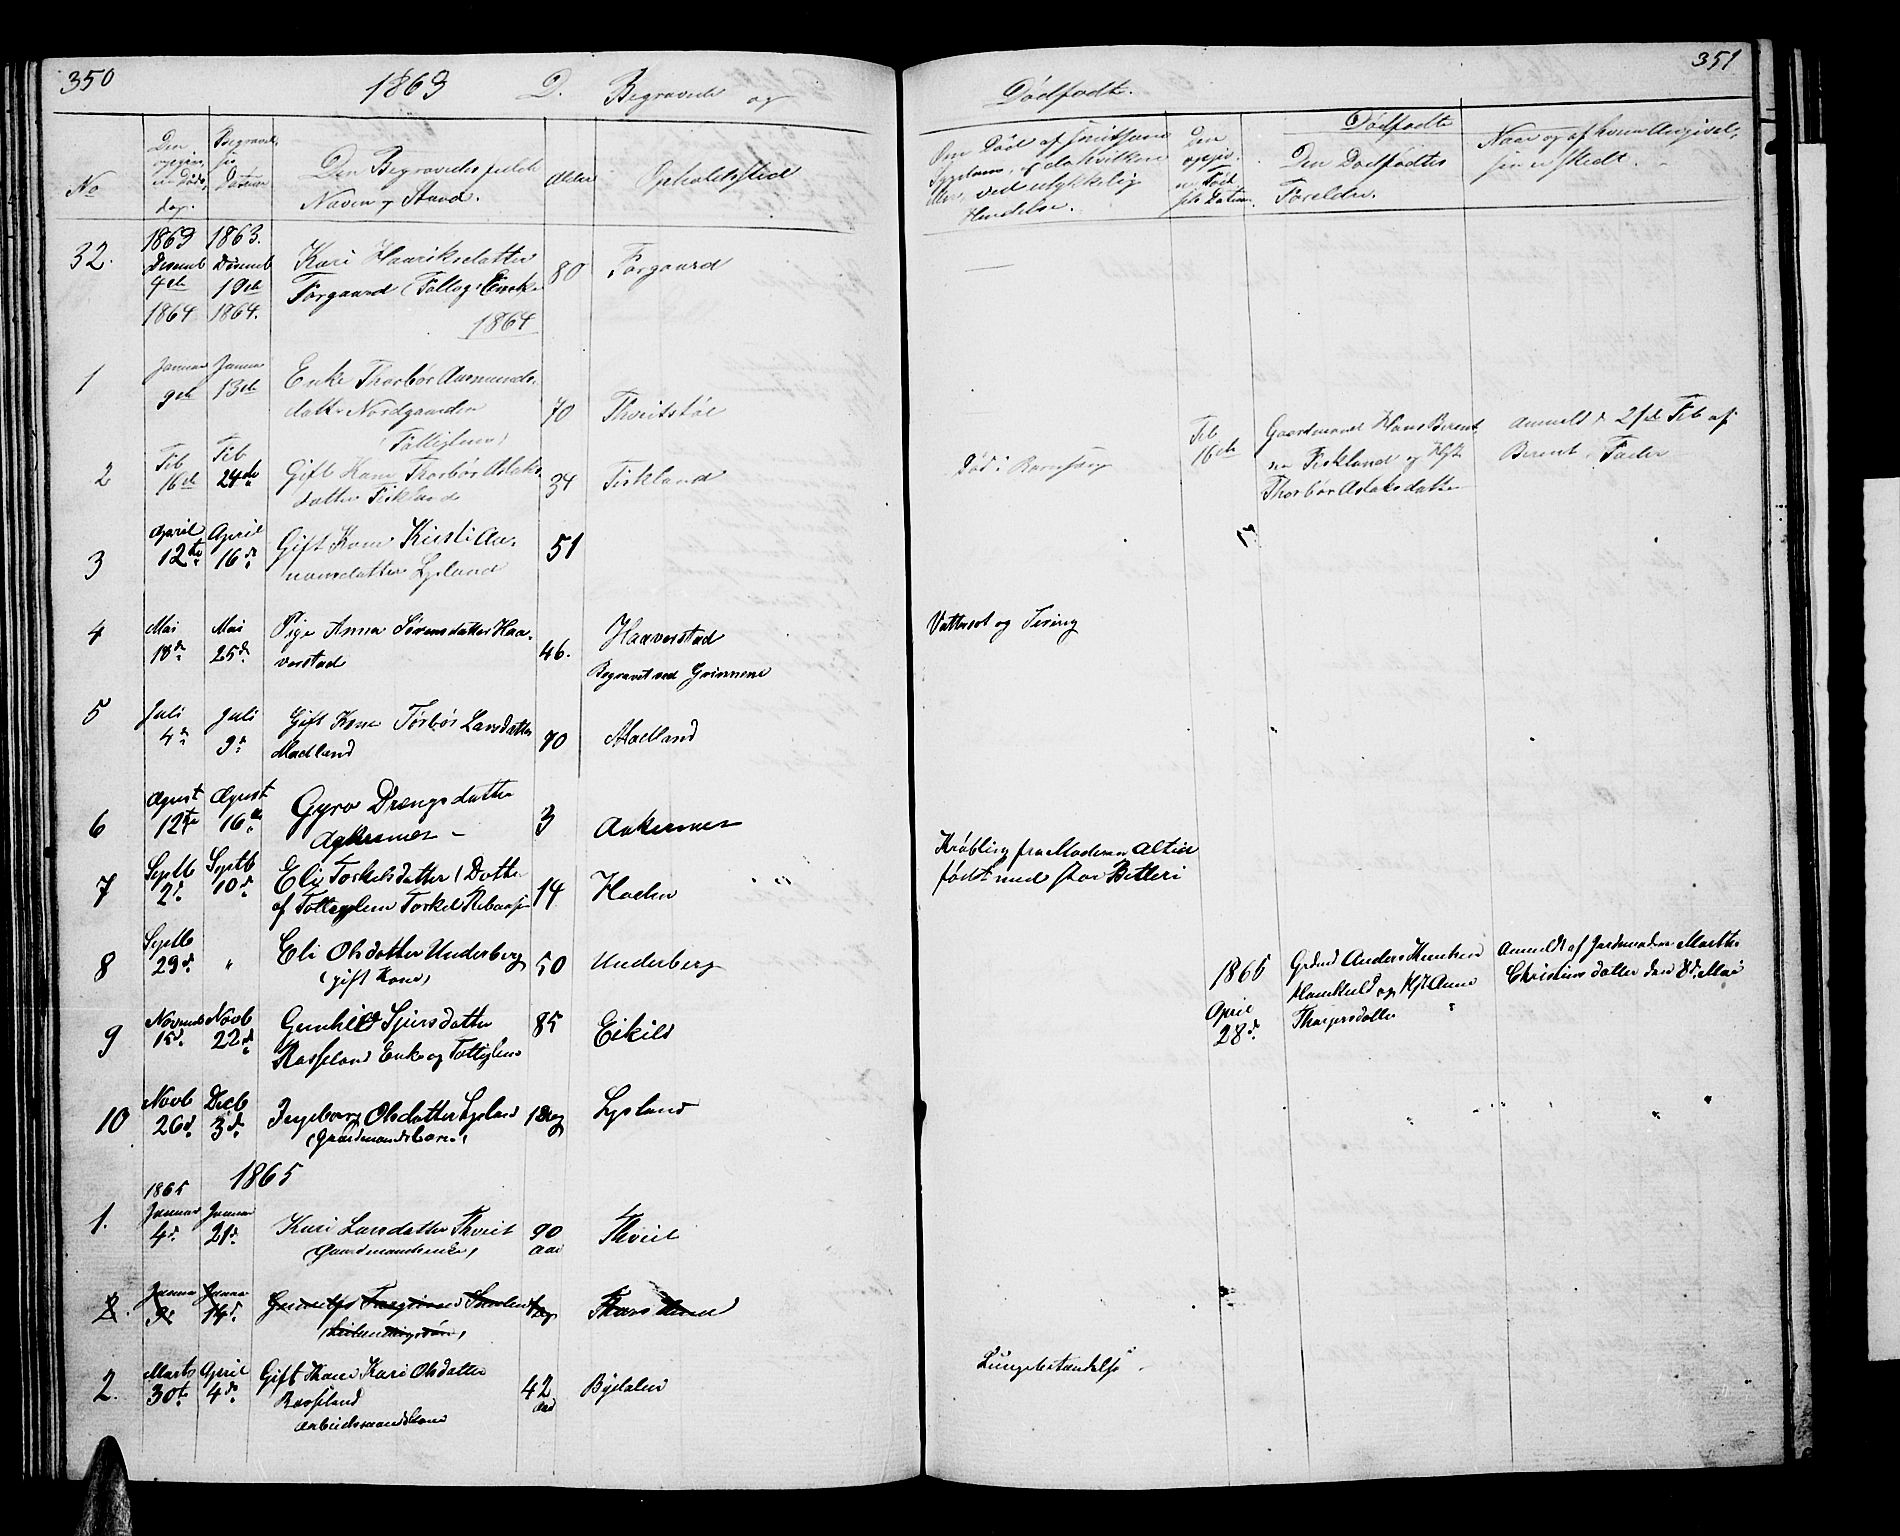 350
1863 D. Begravede og
Dødfødte.
351
No
Den
Døds
dag.
Begravel
Datum
Den Begravedes fulde
Navn og Stand.
Alder
Opholdssted
Om Død af smitsom
Sygdom, og da hvilken
eller ved ulykkelig
Hendelse.
Den
Død
Datum.
Dødfødte
Den Dødfødtes
Forældre.
Naar og af hvem Angivel,
sen er skedt.
32.
1863 1863.
Decemb Decemb
4de 19de
1864 1864.
Kari Henriksdatter
Forgaard (Fattig Enke
80
Forgaard
1864
1
Januar Januar
9de 13de
Enke Thorbør Aamunds,
datter Nordgaarden
(Fattiglem)
70
Thveitstøl
2
Feb Feb
16de 24de
Gift Kone Thorbør Aslaks
datter Fiskland
34
Fiskland
Død i Barnsseng
Feb
16de
Gaardmand Hans Berent
sen Fiskland og Hst
Thorbør Aslaksdatter
Anmeldt 21de Feb af
Berent, Fader
3
April April
12te 16d
Gift Kone Kirsti Aa,
nonsdatter Lyland
51
4
Mai Mai
18d 25d
Pige Anna Sørensdatter Haa,
verstad
46.
Haaverstad
Begravet ved Grimmene
Vattersot og Tæring
5
Juli Juli
4d 9d
Gift Kone Torbør Larsdatter
Madland
70
Madland
6
August August
12te 16de
Gyro Drengsdatter
Aakernes
3
Aakernes
7
Septb Septb
2d 10d
Eli Torkelsdatter (Datter
af Fattiglem Torkel
14
Haden
Krøbling fra Moderen altid
født med stor
8
Septb
29d "
Eli Olsdatter Underberg
(gift Kone)
50
Underberg
1865
April
28d.
Grdmd Anders Knudsen
og Hst Anne
Anmeldt af Jordmoder Marthe
Christensdatter den 8d Mai
9
Novemb Novb
15d 22d
Gunhild Sjursdatter
Rosseland Enke og Fattiglem
85
Eikild
10
Novb Decb
26d 3d
Ingeborg Olsdatter Lyland
(Graardmandsbarn)
1 Dag
Lyland
1865
1865
1.
Januar Januar
4d 21d
Kari Larsdatter Thveit
(Gaardmandsenke)
90
Aar
Thveit
2.
Janua Janua
9d 14d
2.
Marts April
30te 4de
Gift Kone Kari Olsdatter
Rosseland
Arbeidsmandskone
42
Aar
Bjelalen
Lungebetændelse